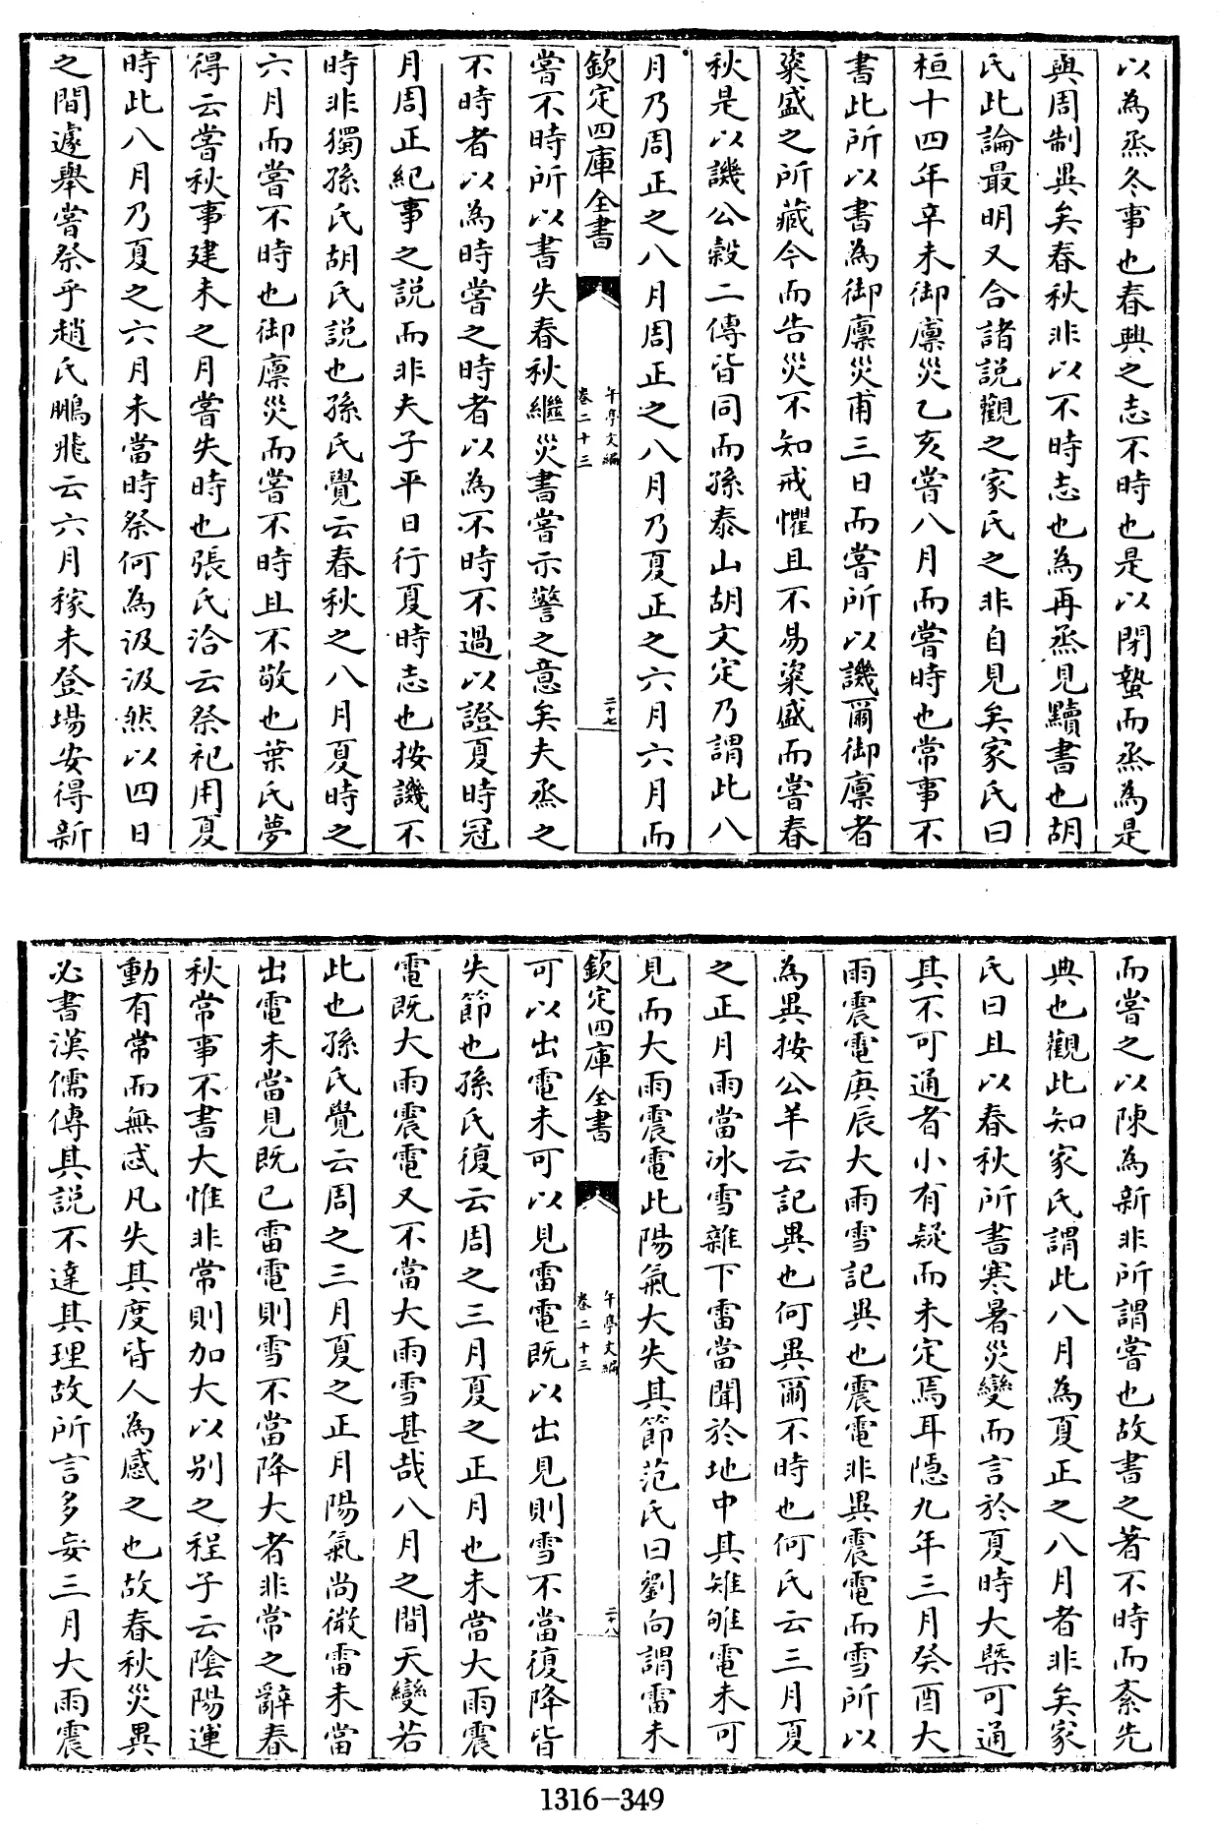 以為烝冬事也春興之志不時也是以閉蟄而烝為是
與周制異矣春秋非以不時志也為再烝見黷書也胡
氏此論最明又合諸説觀之家氏之非自見矣家氏曰
桓十四年辛未御廩災乙亥嘗八月而嘗時也常事不
書此所以書為御廩災甫三日而嘗所以譏爾御廩者
粢盛之所藏今而告災不知戒懼且不易粢盛而嘗春
秋是以譏公榖二傳皆同而孫泰山胡文定乃謂此八
月乃周正之八月周正之八月乃夏正之六月六月而
欽定四庫全書
午亭文編
卷二十三
二十七
嘗不時所以書失春秋繼災書嘗示警之意矣夫烝之
不時者以為時嘗之時者以為不時不過以證夏時冠
月周正紀事之説而非夫子平日行夏時志也按譏不
時非獨孫氏胡氏説也孫氏覺云春秋之八月夏時之
六月而嘗不時也御廩災而嘗不時且不敬也葉氏夢
得云嘗秋事建未之月嘗失時也張氏洽云祭祀用夏
時此八月乃夏之六月未當時祭何為汲汲然以四日
之間遽舉嘗祭乎趙氏鵬飛云六月稼未登場安得新
而嘗之以陳為新非所謂嘗也故書之著不時而紊先
典也觀此知家氏謂此八月為夏正之八月者非矣家
氏曰且以春秋所書寒暑災變而言於夏時大槩可通
其不可通者小有疑而未定焉耳隠九年三月癸酉大
雨震電庚辰大雨雪記異也震電非異震電而雪所以
為異按公羊云記異也何異爾不時也何氏云三月夏
之正月雨當冰雪雜下雷當聞於地中其雉雊電未可
見而大雨震電此陽氣大失其節范氏曰劉向謂雷未
欽定四庫全書
午亭文編
卷二十三
二十八
可以出電未可以見雷電既以出見則雪不當復降皆
失節也孫氏復云周之三月夏之正月也未當大雨震
電既大雨震電又不當大雨雪甚哉八月之間天變若
此也孫氏覺云周之三月夏之正月陽氣尚微雷未當
出電未當見既已雷電則雪不當降大者非常之辭春
秋常事不書大惟非常則加大以别之程子云陰陽運
動有常而無忒凡失其度皆人為感之也故春秋災異
必書漢儒傳其説不達其理故所言多妄三月大雨震
1316-349